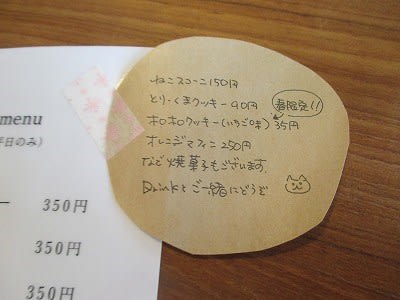 menu
平日のみ)
350円
350円
350円
ねこスコーン150円
とり、くまクッキー90円
春限定!!
ホロホロクッキー(いちご味)35円
オレンジマフィン250円
など焼菓子もございます。
Drinkとご一緒にどうぞ